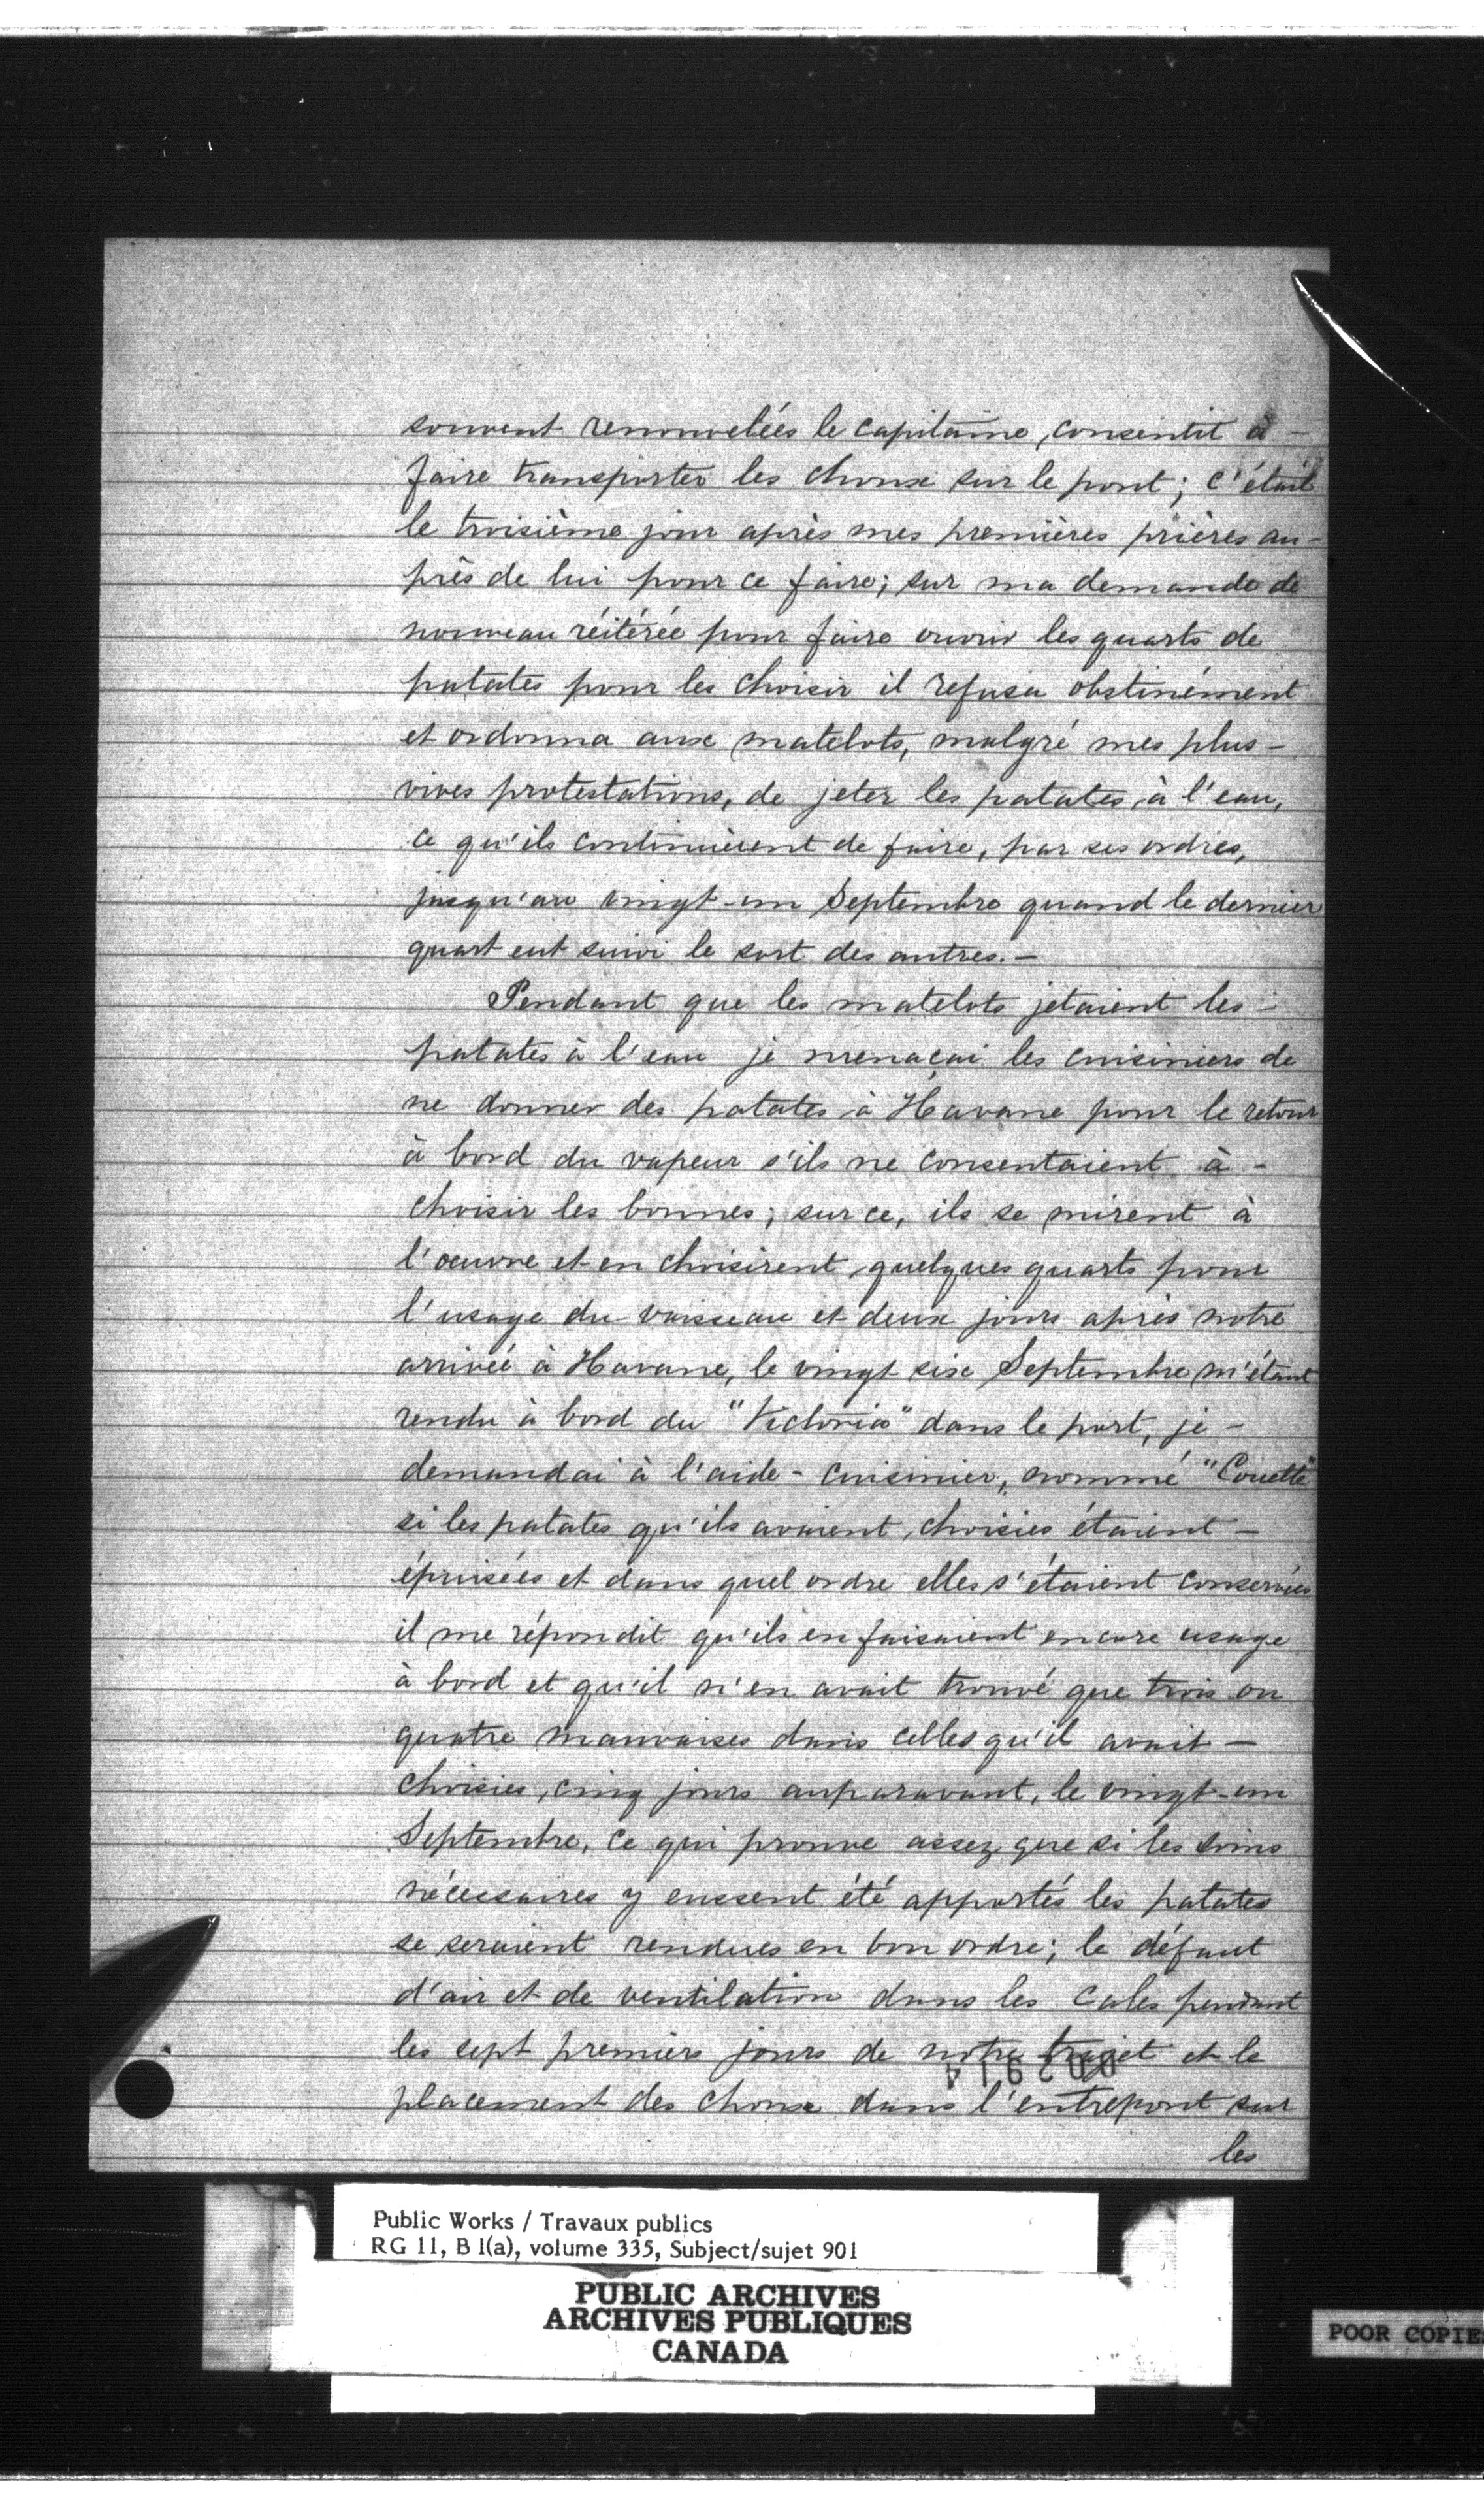 souvent renouvelées le capitaine, consentit à -
faire transporter les choux sur le pont; c'était
le troisième jour après mes premières prières au-
près de lui pour ce faire; sur ma demande de
nouveau réitérée pour faire ouvrir les quarts de
patates pour les choisir il refusa obstinément
et ordonna aux matelots, malgré mes plus -
vives protestations, de jeter les patates à l'eau,
ce qu'ils continuèrent de faire, par ses ordres,
jusqu'au vingt-un Septembre quand le dernier
quart eut suivi le sort des autres. -
Pendant que les matelots jetaient les -
patates à l'eau je menaçai les cuisiniers de
ne donner des patates à Havane pour le retour
à bord du vapeur s'ils ne consentaient à -
choisir les bonnes; sur ce, ils se mirent à
l'oeuvre et en choisirent quelques quarts pour
l'usage du vaisseau et deux jours après notre
arrivée à Havane, le vingt six Septembre m'étant
rendu à bord du "Victoria" dans le port, je -
demandai à l'aide-cuisinier, nommé "Couette"
si les patates qu'ils avaient, choisies étaient -
épuisées et dans quel ordre elles s'étaient conservées
il me répondit qu'ils en faisaient encore usage
à bord et qu'il n'en avait trouvé que trois ou
quatre mauvaises dans celles qu'il avait -
choisies, cinq jours auparavant, le vingt-un
Septembre, ce qui prouve assez que si les soins
nécessaires y eussent été apportés les patates
se seraient rendues en bon ordre; le défaut
d'air et de ventilation dans les cales pendant
les sept premiers jours de notre trajet et le
002914
placement des choux dans l'entrepont sur
les
Public Works / Travaux publics
RG 11, B 1(a), volume 335, Subject/sujet 901
PUBLIC ARCHIVES
ARCHIVES PUBLIQUES
CANADA
POOR COPIE